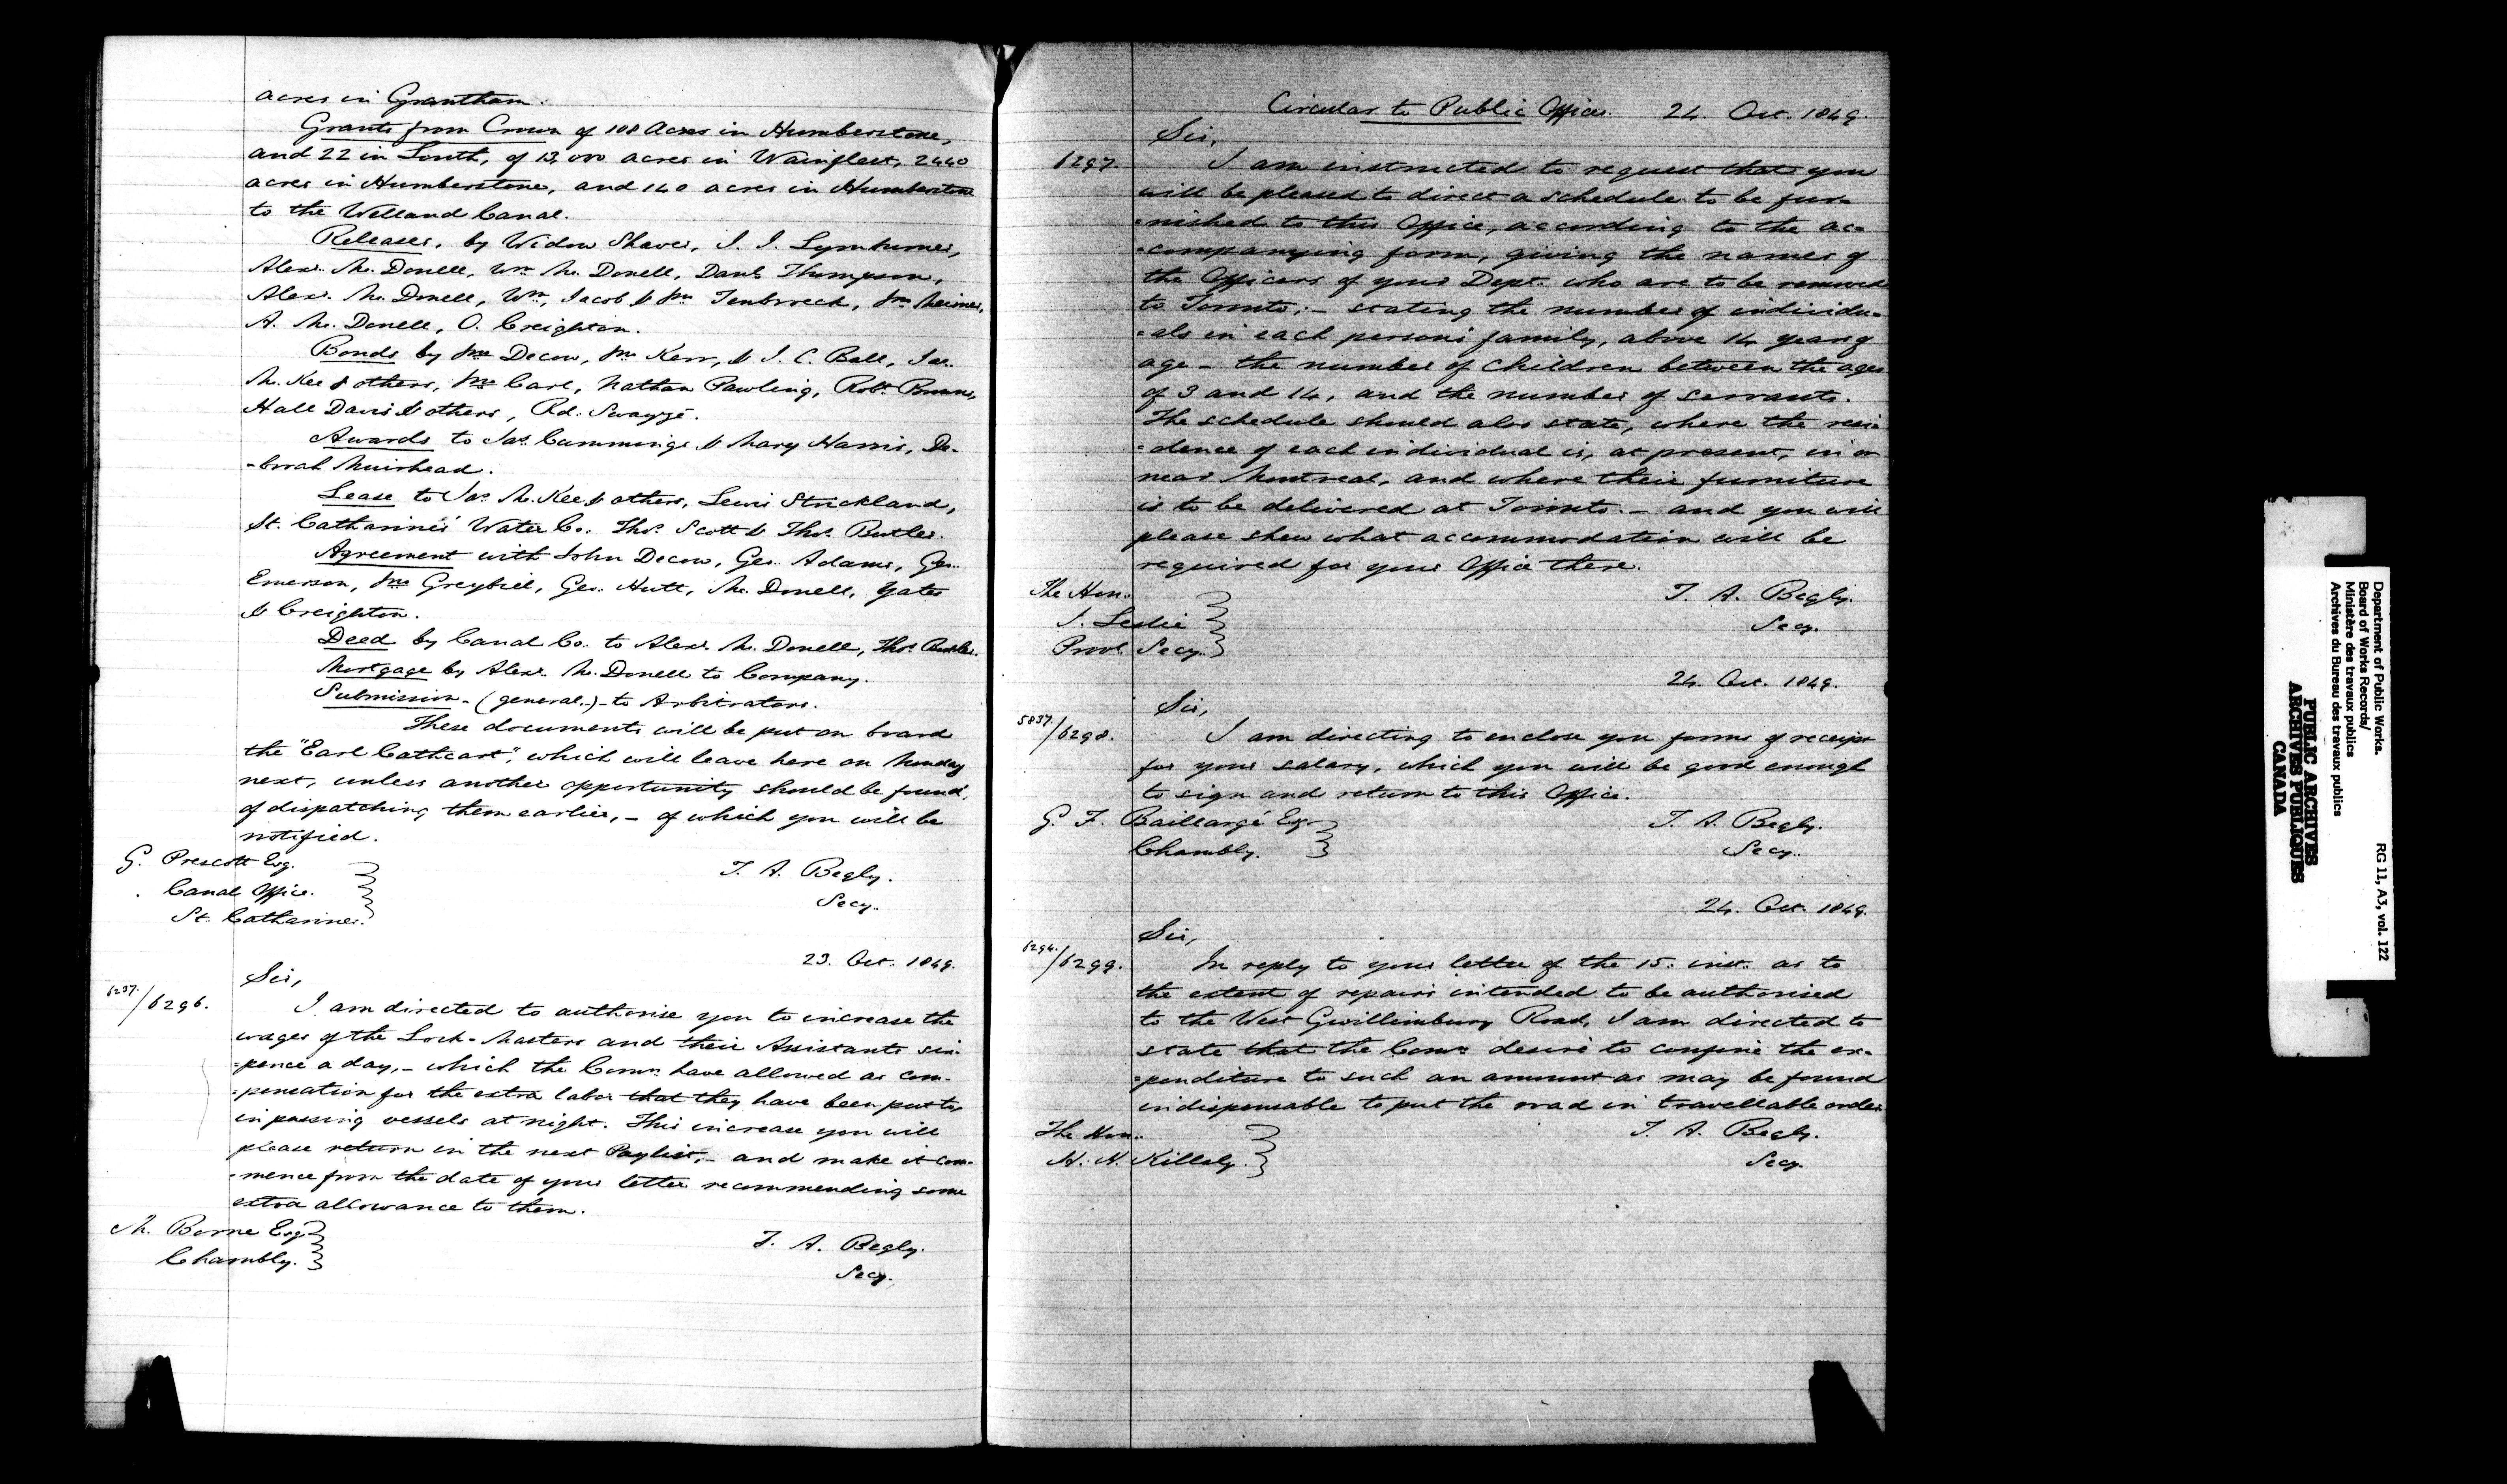 acres in Grantham.
Grants from Crown of 108 Acres in Humberstone,
and 22 in South, of 13,000 acres in Wainfleet, 2440
acres in Humberstone, and 140 acres in Humberstone
to the Welland Canal.
Releases, by Widow Shaver, I. I.
Alexr. McDonell, Wm McDonell, Danl Thompson,
Alexr. McDonell, Wm, Jacob & Jno Tenbroeck, Jno
A. McDonell, O. Creighton.
Bonds by Jno Decow, Jno Kerr, & I. C. Ball, Jas.
McKee & others, Jno Carl, Nathan Pawling, Robt
Hall Davis & others, Rd. Swayzé.
Awards to Jas. Cummings & Mary Harris, De-
-borah Muirhead.
Lease to Jas. McKee & others, Lewis Strickland,
St. Catharines' Water Co. Thos. Scott & Thos. Butler.
Agreement with John Decow, Geo. Adams, Geo.
Emerson, Jno Greybiel, Geo. Hutt, McDonell, Yates
& Creighton.
Deed by Canal Co. to Alexr. McDonell, Thos. Butler.
Mortgage by Alexr. McDonell to Company.
Submission - (general.) - to Arbitrators.
These documents will be put on board
the "Earl Cathcart", which will leave here on Monday
next, unless another opportunity should be found,
of dispatching them earlier, - of which you will be
notified.
G. Prescott Esq.
Canal Office.
St. Catharines.
T. A. Begly.
Secy.
23. Oct. 1849.
Sir,
6237./6296.
I am directed to authorise you to increase the
wages of the Lock-Masters and their Assistants six-
=pence a day, - which the Comrs have allowed as com-
=pensation for the extra labor that they have been put to,
in passing vessels at night. This increase you will
please return in the next Paylist, - and make it com-
-mence from the date of your letter recommending some
extra allowance to them.
M. Borne Esq.
Chambly.
T. A. Begly.
Secy.
Circular to Public Offices. 24. Oct. 1849.
Sir,
6297.
I am instructed to request that you
will be pleased to direct a schedule to be fur-
=nished to this Office, according to the ac=
=companying form, giving the names of
the Officers of your Dept. who are to be removed
to Toronto; - stating the number of individu=
=als in each persons family, above 14 years of
age - the number of children between the ages
of 3 and 14, and the number of servants.
The schedule should also state, where the resi=
=dence of each individual is, at present, in or
near Montreal, and where their furniture
is to be delivered at Toronto. - and you will
please shew what accommodation will be
required for your Office there.
The Hon.
J. Leslie
Provl. Secy.
T. A. Begly.
Secy.
24. Oct. 1849.
Sir,
5837./6298.
I am directing to enclose you forms of receipt
for your salary, which you will be good enough
to sign and return to this Office.
G. F. Baillargé Esqr
Chambly.
T. A. Begly.
Secy.
24. Oct. 1849.
Sir,
6294./6299.
In reply to your letter of the 15. inst. as to
the extent of repairs intended to be authorised
to the West Gwillimbury Road, I am directed to
state that the Comrs desire to confine the ex=
=penditure to such an amount as may be found
indispensable to put the road in travellable order.
The Hon.
H. H. Killaly.
T. A. Begly.
Secy.
Department of Public Works.
Board of Works Records/
Ministère des travaux publics
Archives du Bureau des travaux publics
RG 11, A3, vol. 122
PUBLIC ARCHIVES
ARCHIVES PUBLIQUES
CANADA